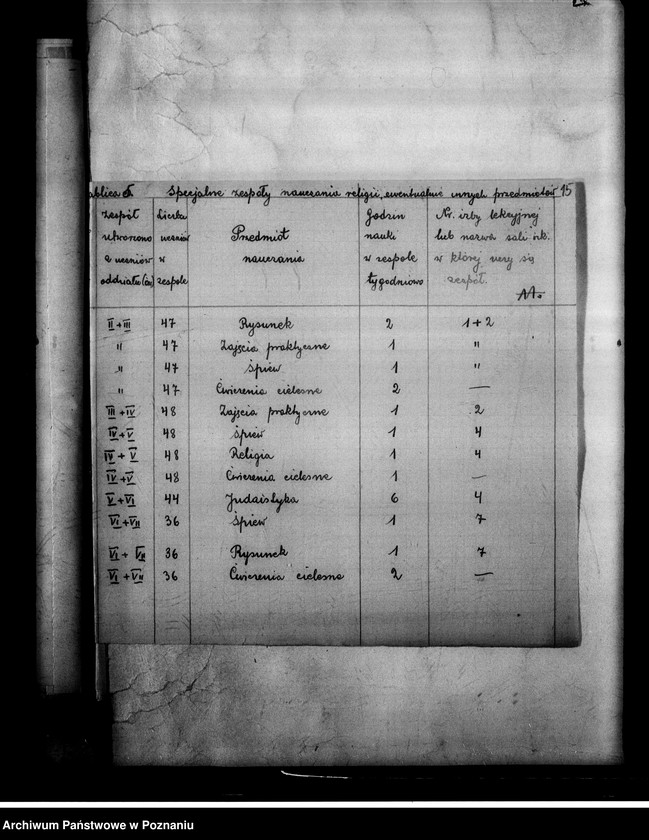 Specjalne zespoły nauczania religii, ewentualnie innych przedmiotów 15
Zespół utworzono z uczniów oddziału (ów) | Liczba uczniów w zespole | Przedmiot nauczania | Godzin nauki w zespole tygodniowo | Nr. izby lekcyjnej lub nazwa sali w której uczy się zespół.
II+III 47 Rysunek 2 1+2
" 47 Zajęcia praktyczne 1 "
" 47 Śpiew 1 "
" 47 Ćwiczenia cielesne 2 —
III+IV 48 Zajęcia praktyczne 1 2
IV+V 48 Śpiew 1 4
IV+V 48 Religia 1 4
IV+V 48 Ćwiczenia cielesne 1 —
V+VI 44 Judaistyka 6 4
VI+VII 36 Śpiew 1 7
VI+VII 36 Rysunek 1 7
VI+VII 36 Ćwiczenia cielesne 2 —
Archiwum Państwowe w Poznaniu